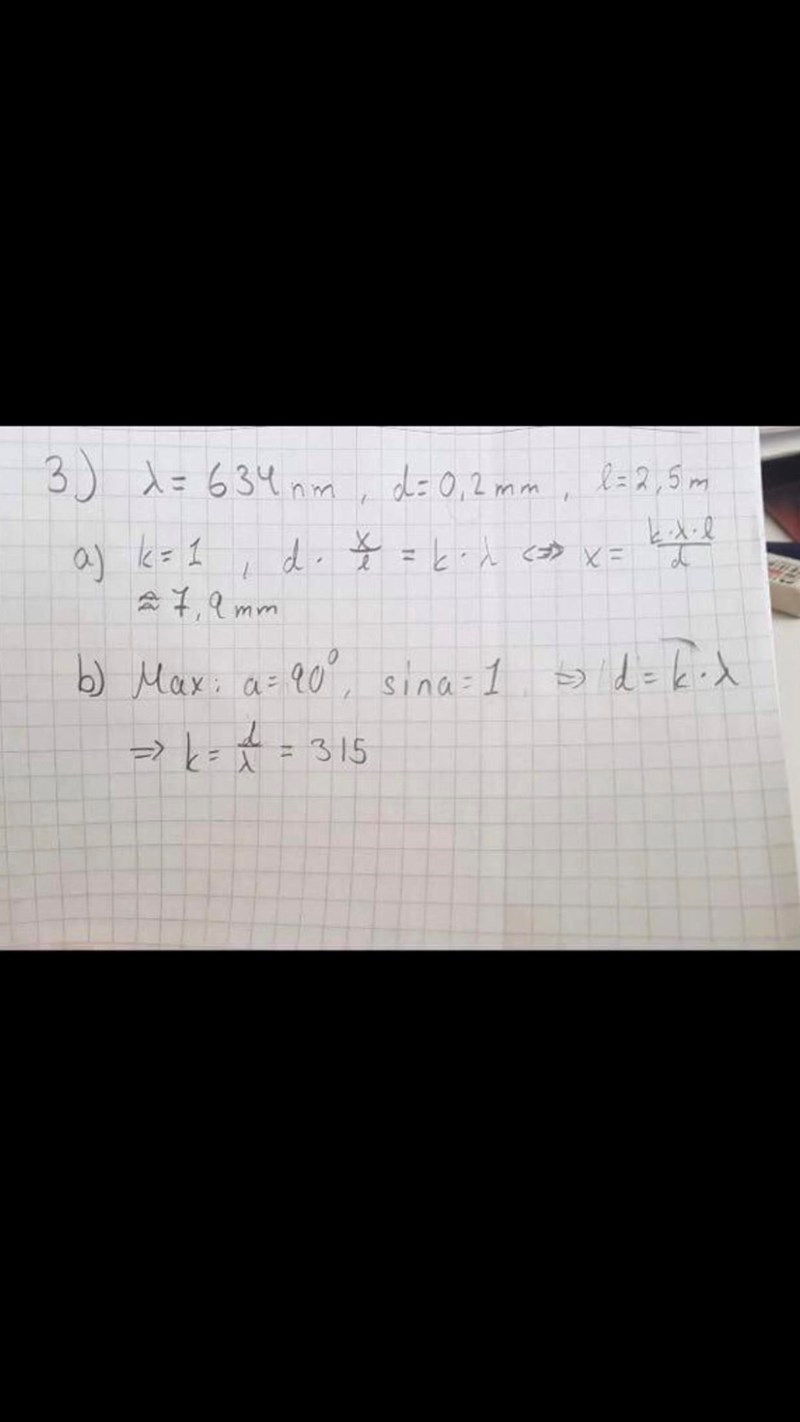 3) λ = 634 nm , d = 0,2 mm , l = 2,5 m
a) k = 1 , d · x/l = k · λ <=> x = k·λ·l/d
≈ 7,9 mm
b) Max: a = 90°, sina = 1 => d = k · λ
=> k = d/λ = 315